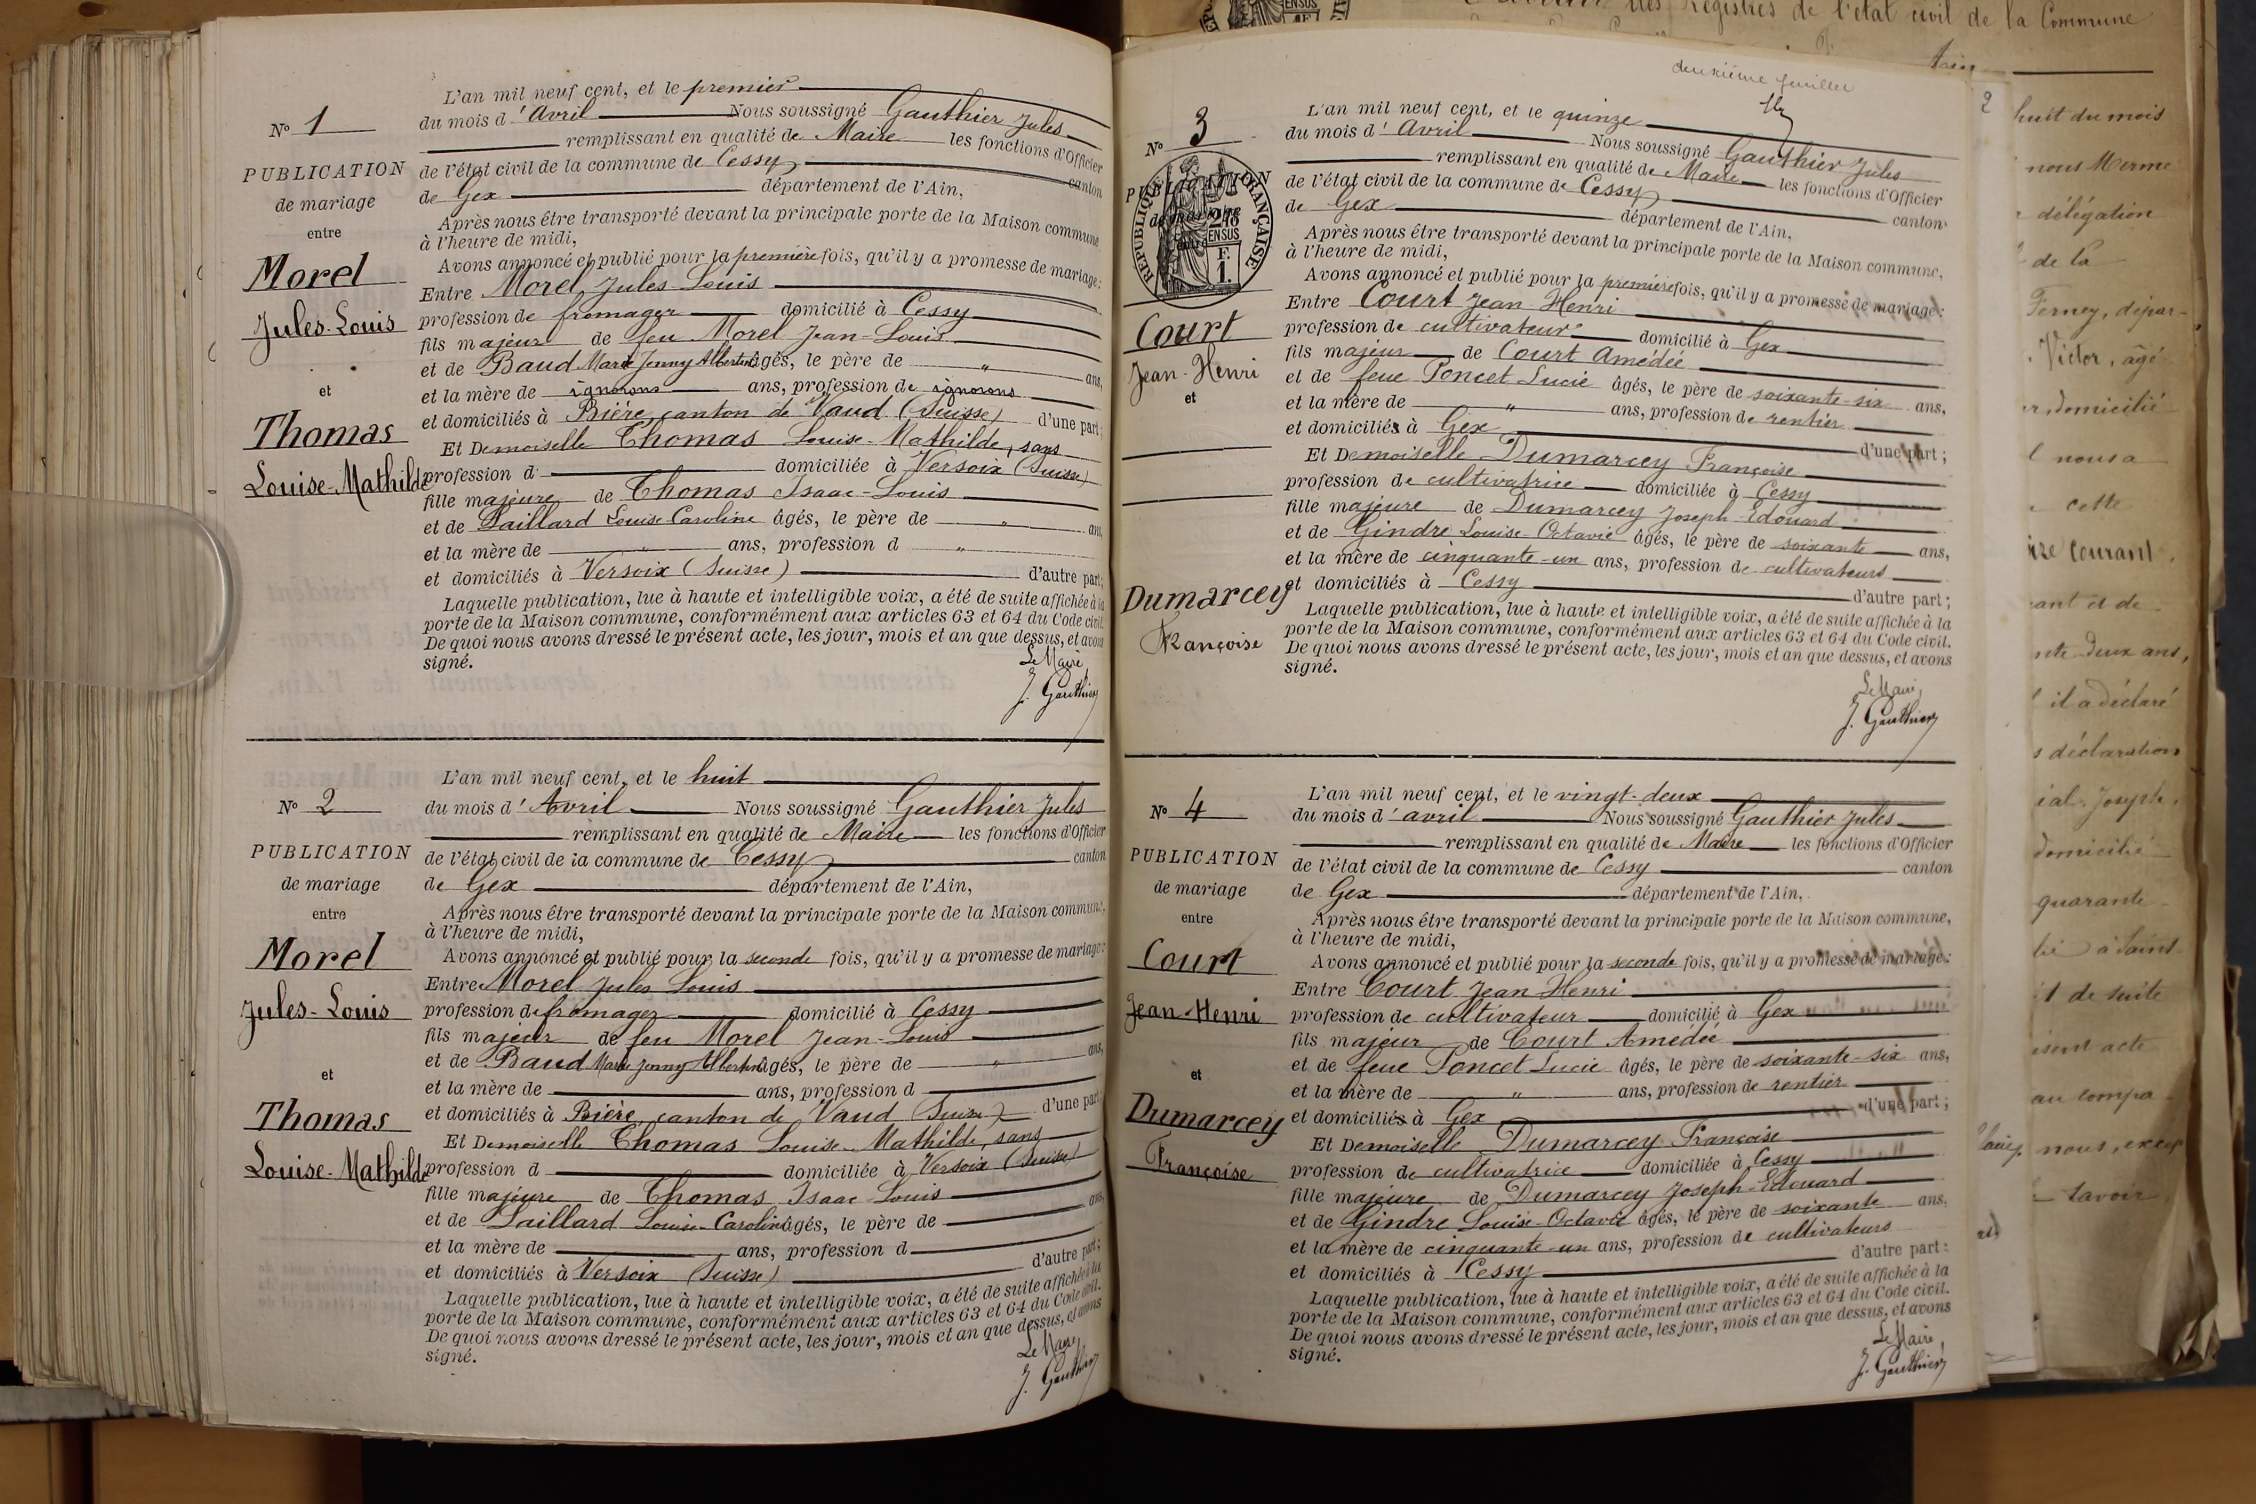 L'an mil neuf cent, et le premier
N° 1
du mois d'Avril Nous soussigné Gauthier Jules
remplissant en qualité de Maire les fonctions d'Officier
PUBLICATION
de mariage
entre
Morel
Jules-Louis
et
Thomas
Louise-Mathilde
de l'état civil de la commune de Cessy canton
de Gex département de l'Ain,
Après nous être transporté devant la principale porte de la Maison commune
à l'heure de midi,
Avons annoncé et publié pour la première fois, qu'il y a promesse de mariage:
Entre Morel Jules Louis
profession de fromager domicilié à Cessy
fils majeur de feu Morel Jean-Louis
et de Baud Marie Jenny Albertine âgés, le père de " ans,
et la mère de ignorons ans, profession de ignorons
et domiciliés à Bière, canton de Vaud (Suisse) d'une part;
Et Demoiselle Thomas Louise-Mathilde, sans
profession d domiciliée à Versoix (Suisse)
fille majeure de Thomas Isaac-Louis
et de Paillard Louise Caroline âgés, le père de " ans,
et la mère de " ans, profession d "
et domiciliés à Versoix (Suisse) d'autre part;
Laquelle publication, lue à haute et intelligible voix, a été de suite affichée à la
porte de la Maison commune, conformément aux articles 63 et 64 du Code civil.
De quoi nous avons dressé le présent acte, les jour, mois et an que dessus, et avons
signé.
Le Maire
J. Gauthier
L'an mil neuf cent, et le huit
N° 2
du mois d'Avril Nous soussigné Gauthier Jules
remplissant en qualité de Maire les fonctions d'Officier
PUBLICATION
de mariage
entre
Morel
Jules-Louis
et
Thomas
Louise-Mathilde
de l'état civil de la commune de Cessy canton
de Gex département de l'Ain,
Après nous être transporté devant la principale porte de la Maison commune,
à l'heure de midi,
Avons annoncé et publié pour la seconde fois, qu'il y a promesse de mariage:
Entre Morel Jules Louis
profession de fromager domicilié à Cessy
fils majeur de feu Morel Jean-Louis
et de Baud Marie Jenny Albertine âgés, le père de " ans,
et la mère de ans, profession d
et domiciliés à Bière, canton de Vaud (Suisse) d'une part
Et Demoiselle Thomas Louise-Mathilde, sans
profession d domiciliée à Versoix (Suisse)
fille majeure de Thomas Isaac Louis
et de Paillard Louise-Caroline âgés, le père de ans,
et la mère de ans, profession d
et domiciliés à Versoix (Suisse) d'autre part;
Laquelle publication, lue à haute et intelligible voix, a été de suite affichée à la
porte de la Maison commune, conformément aux articles 63 et 64 du Code civil.
De quoi nous avons dressé le présent acte, les jour, mois et an que dessus, et avons
signé.
Le Maire
J. Gauthier
deuxième feuillet
L'an mil neuf cent, et le quinze
N° 3
du mois d'Avril Nous soussigné Gauthier Jules
remplissant en qualité de Maire les fonctions d'Officier
PUBLICATION
de mariage
entre
RÉPUBLIQUE FRANÇAISE
Court
Jean-Henri
et
Dumarcey
Françoise
de l'état civil de la commune de Cessy canton
de Gex département de l'Ain,
Après nous être transporté devant la principale porte de la Maison commune,
à l'heure de midi,
Avons annoncé et publié pour la première fois, qu'il y a promesse de mariage:
Entre Court Jean Henri
profession de cultivateur domicilié à Gex
fils majeur de Court Amédée
et de feue Poncet Lucie âgés, le père de soixante-six ans,
et la mère de " ans, profession de rentier
et domiciliés à Gex d'une part;
Et Demoiselle Dumarcey Françoise
profession de cultivatrice domiciliée à Cessy
fille majeure de Dumarcey Joseph-Edouard
et de Gindre Louise-Octavie âgés, le père de soixante ans,
et la mère de cinquante-un ans, profession de cultivateurs
et domiciliés à Cessy d'autre part;
Laquelle publication, lue à haute et intelligible voix, a été de suite affichée à la
porte de la Maison commune, conformément aux articles 63 et 64 du Code civil.
De quoi nous avons dressé le présent acte, les jour, mois et an que dessus, et avons
signé.
Le Maire
J. Gauthier
L'an mil neuf cent, et le vingt-deux
N° 4
du mois d'avril Nous soussigné Gauthier Jules
remplissant en qualité de Maire les fonctions d'Officier
PUBLICATION
de mariage
entre
Court
Jean-Henri
et
Dumarcey
Françoise
de l'état civil de la commune de Cessy canton
de Gex département de l'Ain,
Après nous être transporté devant la principale porte de la Maison commune,
à l'heure de midi,
Avons annoncé et publié pour la seconde fois, qu'il y a promesse de mariage:
Entre Court Jean Henri
profession de cultivateur domicilié à Gex
fils majeur de Court Amédée
et de feue Poncet Lucie âgés, le père de soixante-six ans,
et la mère de " ans, profession de rentier
et domiciliés à Gex d'une part;
Et Demoiselle Dumarcey Françoise
profession de cultivatrice domiciliée à Cessy
fille majeure de Dumarcey Joseph-Edouard
et de Gindre Louise-Octavie âgés, le père de soixante ans,
et la mère de cinquante-un ans, profession de cultivateurs
et domiciliés à Cessy d'autre part:
Laquelle publication, lue à haute et intelligible voix, a été de suite affichée à la
porte de la Maison commune, conformément aux articles 63 et 64 du Code civil.
De quoi nous avons dressé le présent acte, les jour, mois et an que dessus, et avons
signé.
Le Maire
J. Gauthier
des Registres de l'état civil de la Commune
2
huit du mois
nous Merme
délégation
de la
Ferney, dépar-
Victor, âgé
domicilié
nous a
cette
courant,
et de
deux ans,
il a déclaré
déclaration
Joseph,
domicilié
quarante
à Saint
de suite
acte
au compa-
nous, excep
savoir